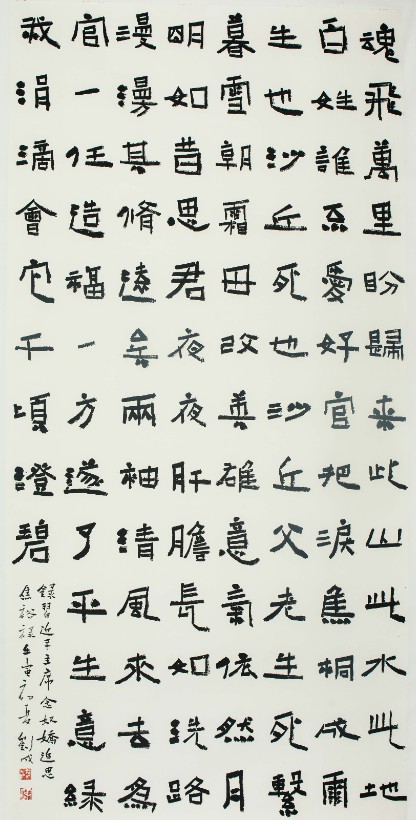 魂飛萬里盼歸来此山此水此地
百姓誰不愛好官把淚焦桐成雨
生也沙丘死也沙丘父老生死繫
暮雪朝霜毋改英雄意氣依然月
明如昔思君夜夜肝膽長如洗路
漫漫其脩遠矣兩袖清風來去為
官一任造福一方遂了平生意綠
我涓滴會它千頃澄碧
錄習近平主席念奴嬌追思
焦裕祿 劉